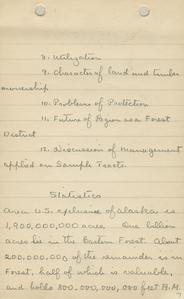 8. Utilization
9. Character of land and timber
ownership
10. Problems of Protection
11. Future of Region as a Forest
District
12. Discussion of Management
applied on Sample Tracts.
Statistics
Area U.S. exclusive of Alaska is
1,900,000,000 acres. One billion
acres lie in the Eastern Forest. About
200,000,000 of the remainder is in
Forest, half of which is valuable,
and holds 800,000,000,000 feet B.M.